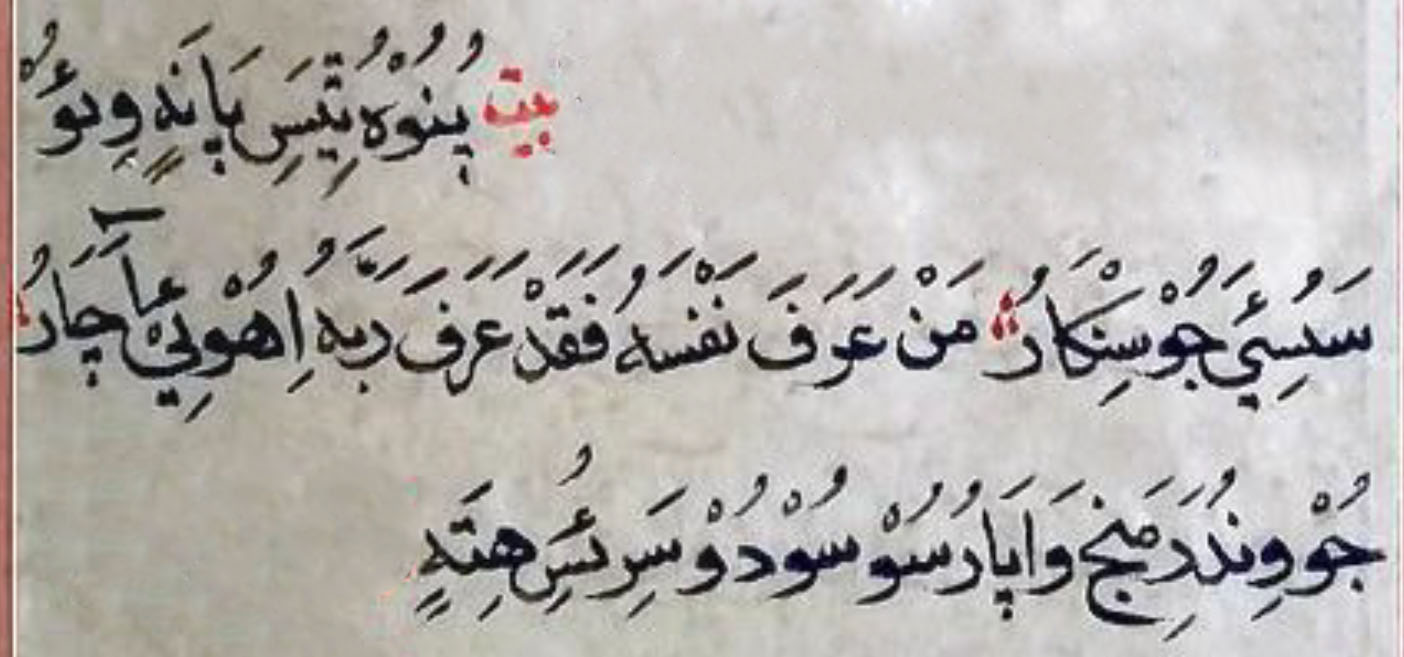 بيت پُنُوْهُ تِّيَسِ پَانَهٍ وِيَوْ
سَسُئِيَ جُوْ سِنْكَارُ مَنْ عَرَفَ نَفْسَهُ فَقَدْ عَرَفَ رَبَّهُ اِهُوْئِيْ آچَارُ
جُوْ وِنُدَرِ مَنجِ وَاپَارُ سُوْ سُوْدُوْ سَرِ سُئِ هِتَهٍ